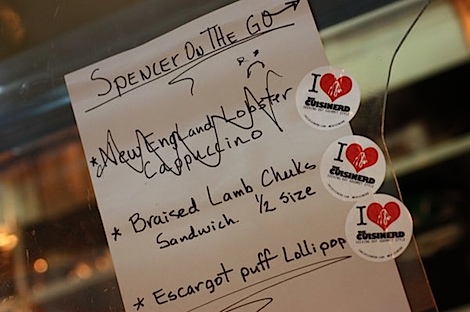 SPENCER ON THE GO
*New England Lobster
Cappuccino
* Braised Lamb Cheeks
Sandwich 1/2 size
* Escargot puff Lollipop
I
THE CUISINERD
I
THE CUISINERD
I
THE CUISINERD